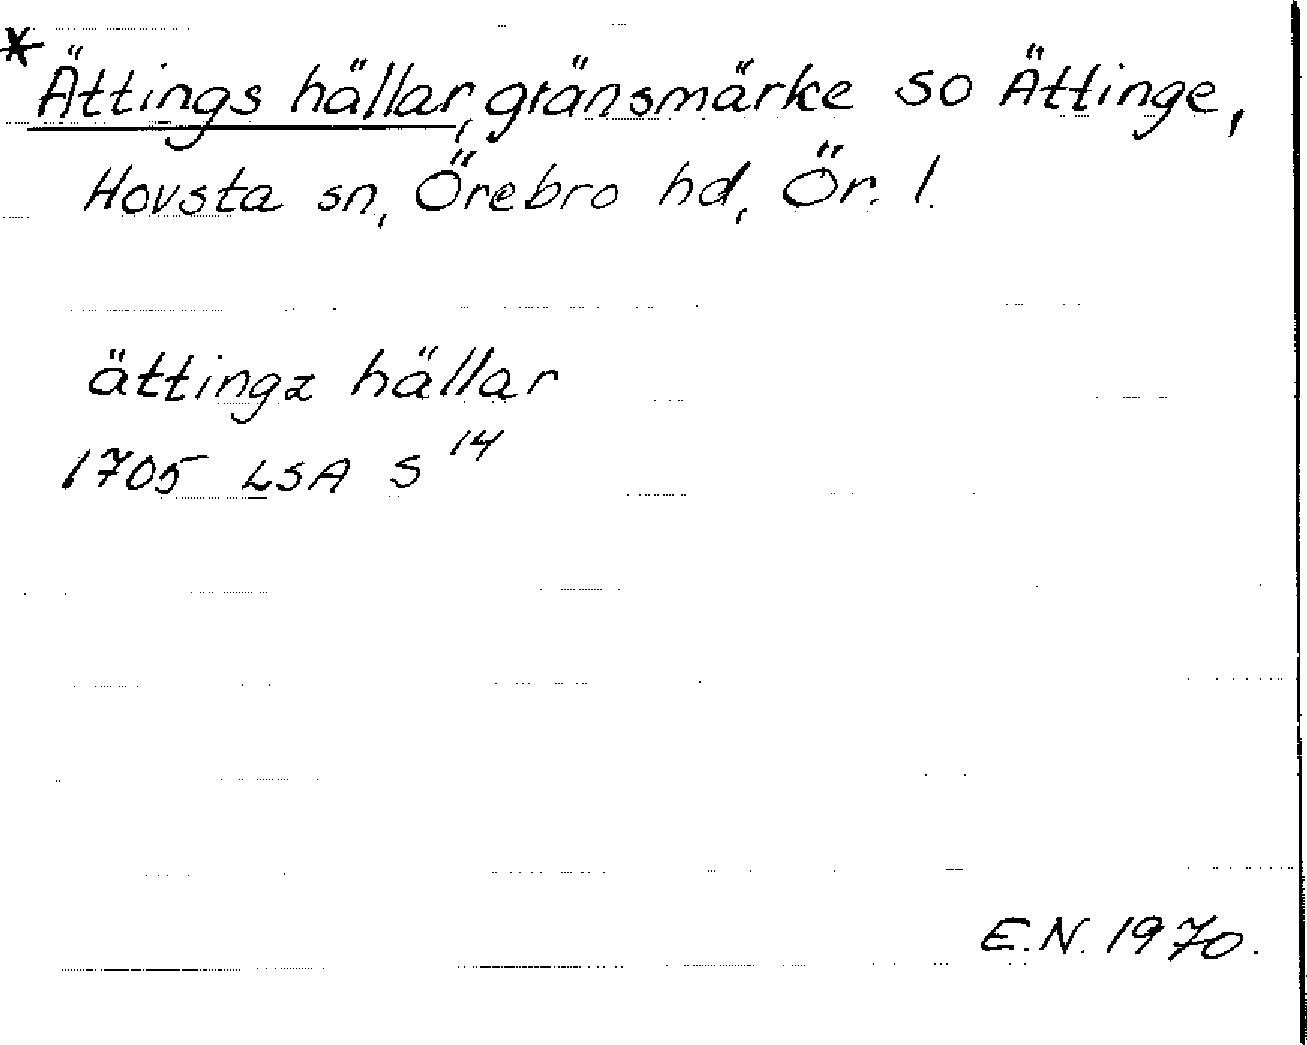 * Ättings hällar, gränsmärke SO Ättinge,
Hovsta sn, Örebro hd, Ör. l.
ättingz hällar
1705 LSA S 14
E.N. 1970.